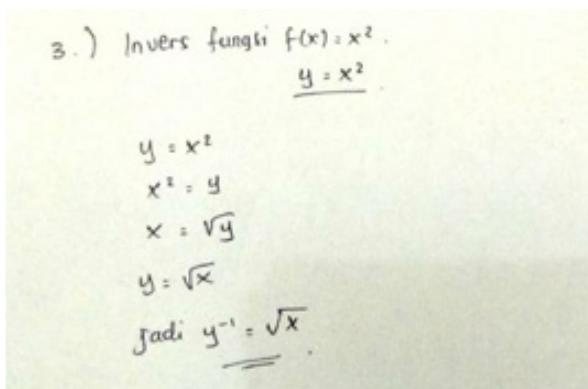 3.) Invers fungsi f(x) = x².
y = x²
y = x²
x² = y
x = √y
y = √x
Jadi y⁻¹ = √x.